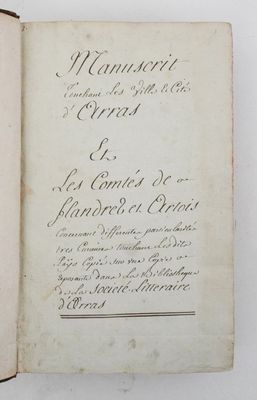 Manuscrit
Touchant Les Ville & Cité
d'Arras
Et
Les Comtés de
flandres et Artois
Concernant differentes particularités
tres Curieuses touchant Lesdits
Païs Copié sur une Copie
reposante dans La Bibliotheque
de La Societé Litteraire
d'Arras